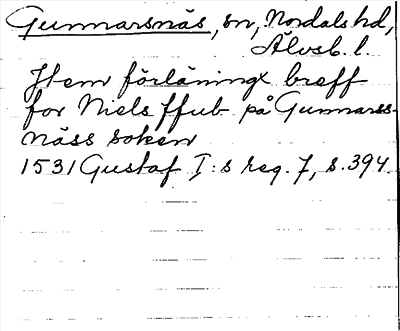 Gunnarsnäs, sn, Nordals hd,
Älvsb. l.
Item förläningx breff
for Niels ffub på Gunnarss-
näss soken
1531 Gustaf I:s reg. 7, s. 394.